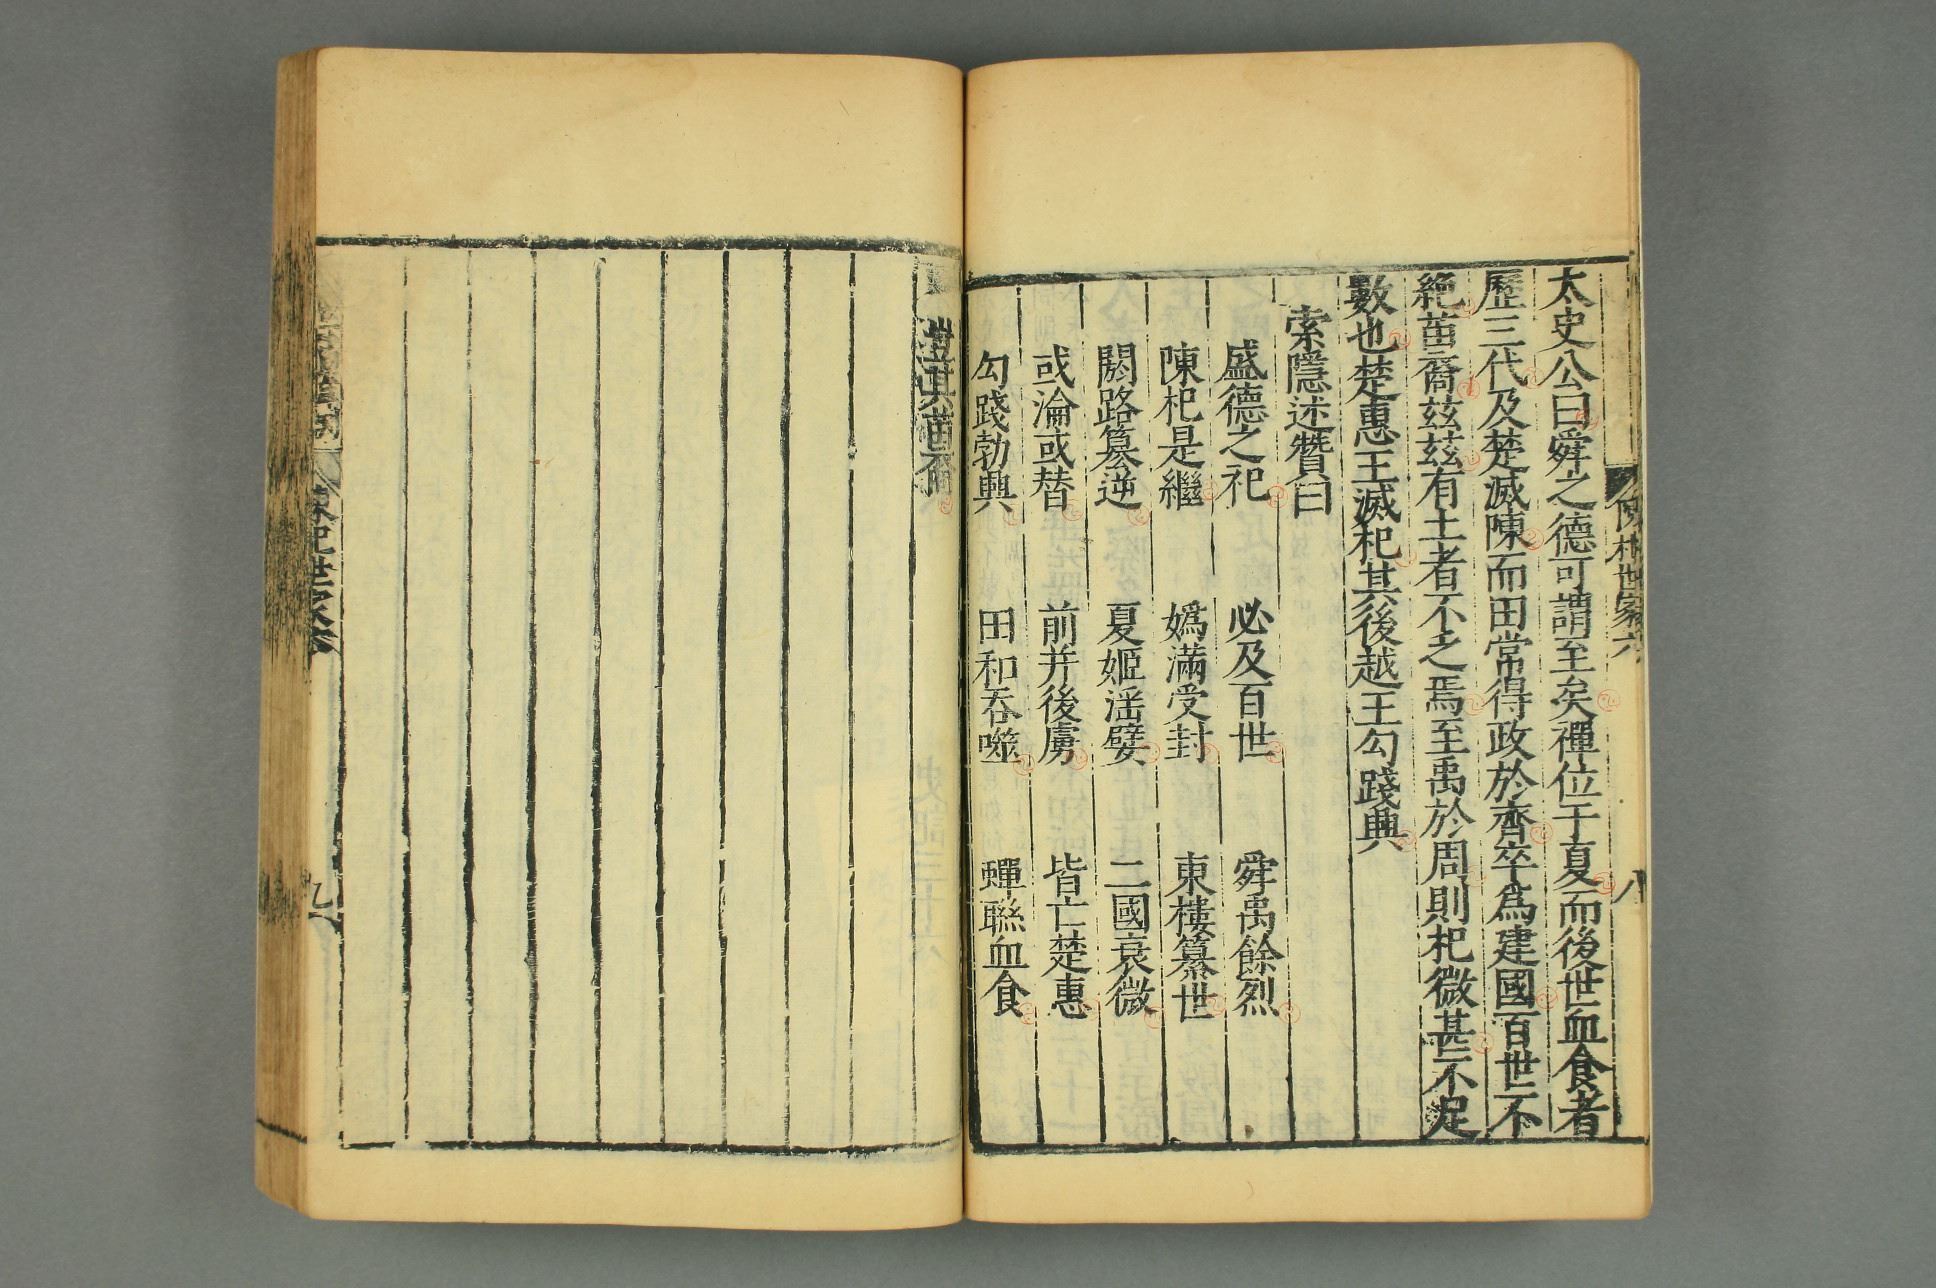 陳杞世家六
八
太史公曰舜之德可謂至矣禪位于夏而後世血食者
歷三代及楚滅陳而田常得政於齊卒爲建國百世不
絶苗裔兹兹有土者不乏焉至禹於周則杞微甚不足
數也楚惠王滅杞其後越王勾踐興
索隱述贊曰
盛德之祀 必及百世 舜禹餘烈
陳杞是繼 嬀滿受封 東樓纂世
閼路篡逆 夏姬淫嬖 二國衰微
或淪或替 前并後虜 皆亡楚惠
勾踐勃興 田和吞噬 蟬聯血食
豈其苗裔
陳杞世家六
九